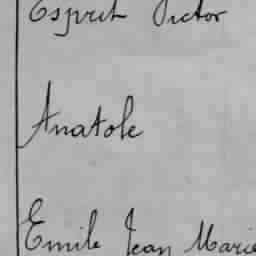 Esprit Victor
Anatole
Emile Jean Marie